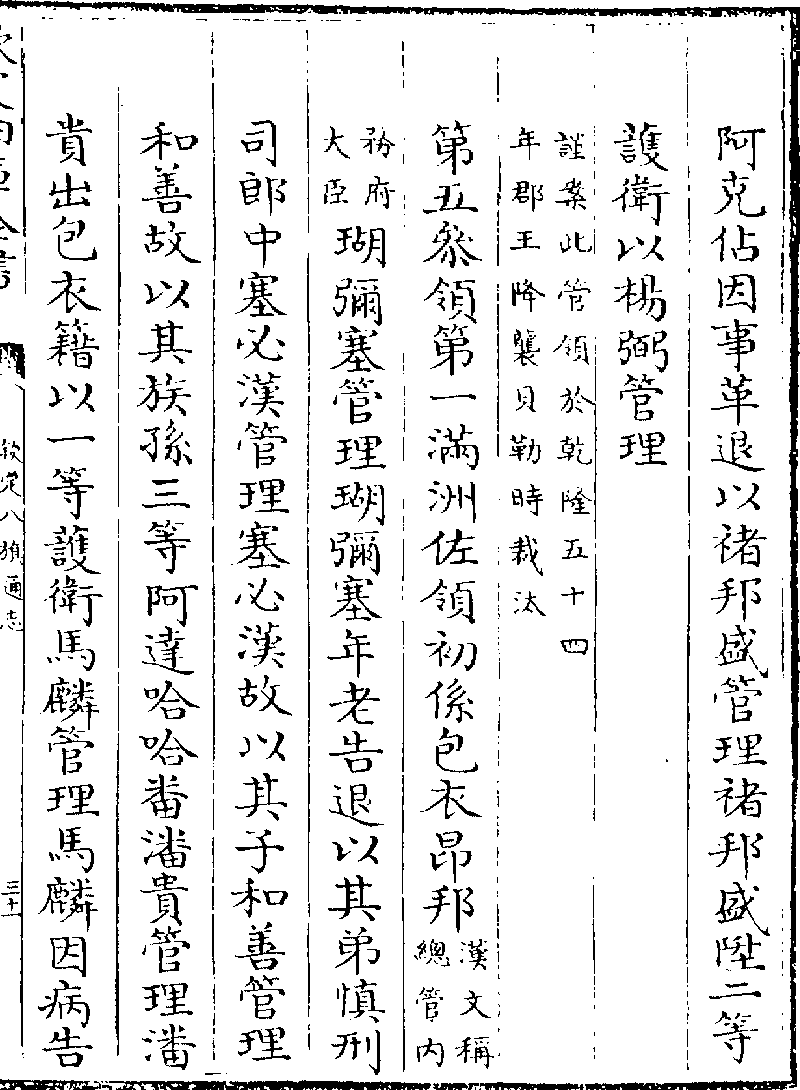 阿克佔因事革退以褚邦盛管理褚邦盛陞二等
護衛以楊弼管理
謹案此管領於乾隆五十四
年郡王降襲貝勒時裁汰
第五叅領第一滿洲佐領初係包衣昂邦漢文稱
總管内
務府
大臣瑚彌塞管理瑚彌塞年老告退以其弟慎刑
司郎中塞必漢管理塞必漢故以其子和善管理
和善故以其族孫三等阿達哈哈番潘貴管理潘
貴出包衣籍以一等護衛馬麟管理馬麟因病告
欽定八旗通志
三十